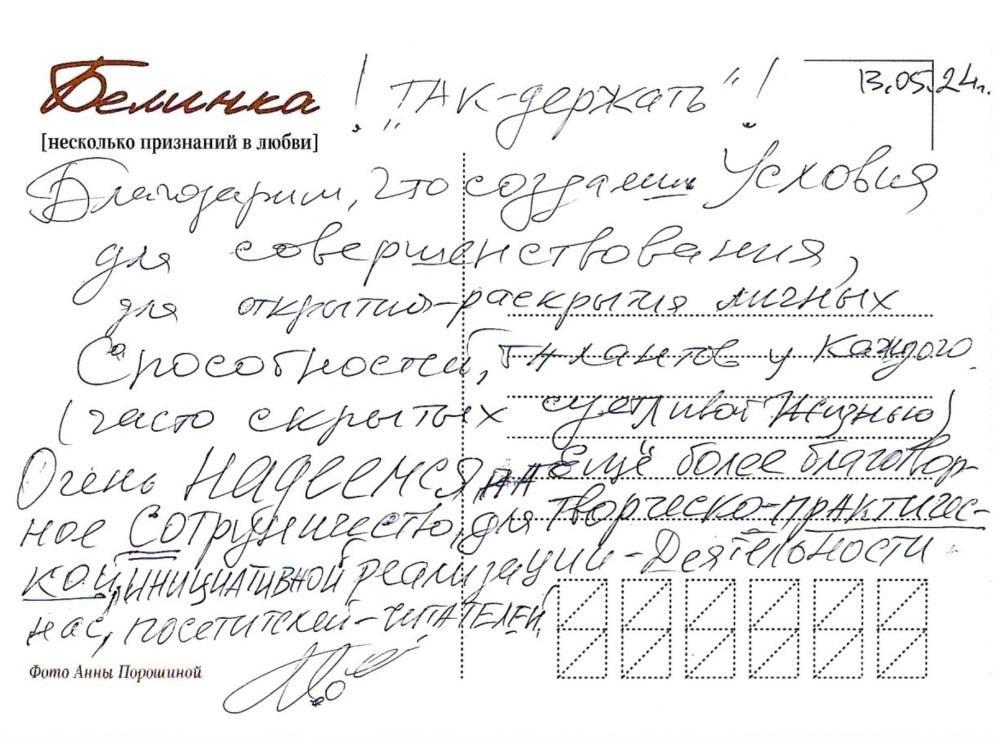 Белинка ! „ТАК-держать“ ! 13.05.24г.
[несколько признаний в любви]
Благодарим, что создали Условия
для совершенствования,
для открытия-раскрытия личных
Способностей, талантов у каждого
(часто скрытых суетливой Жизнью)
Очень Надеемся на Ещё более благотвор-
ное Сотрудничество, для творческо-практичес-
кой, инициативной реализации-Деятельности
нас, посетителей-читателей
Фото Анны Порошиной